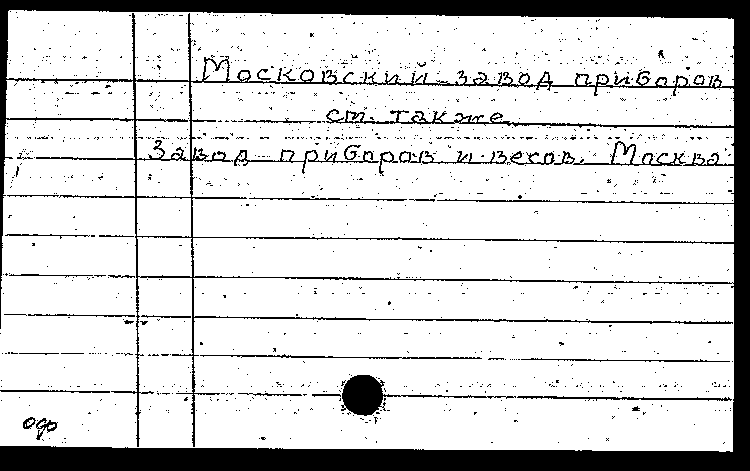 Московский завод приборов
см. также
Завод приборов и весов. Москва
одр